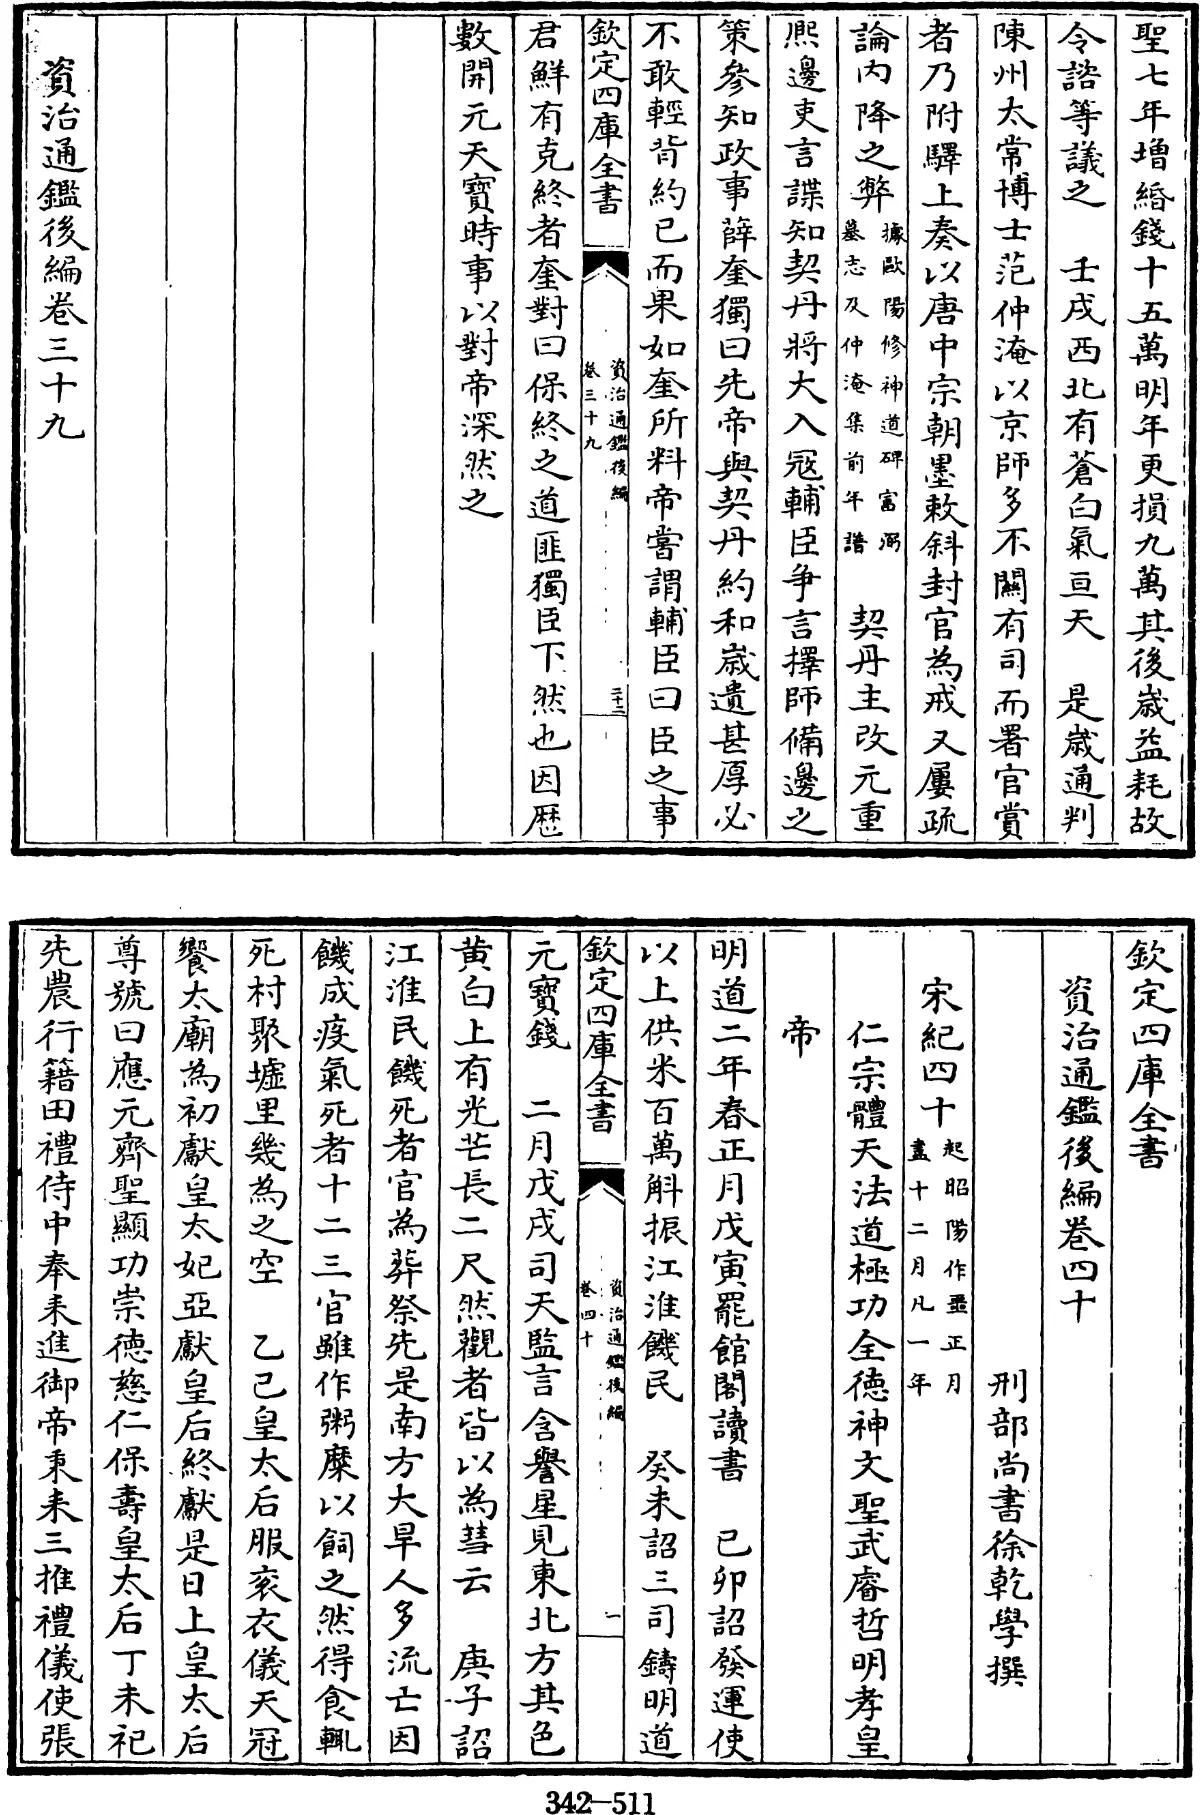 聖七年増緡錢十五萬明年更損九萬其後歳益耗故
令諮等議之　壬戌西北有蒼白氣亘天　是歳通判
陳州太常博士范仲淹以京師多不關有司而署官賞
者乃附驛上奏以唐中宗朝墨敕斜封官為戒又屢疏
論内降之弊據歐陽修神道碑富弼墓志及仲淹集前年譜　契丹主改元重
熙邊吏言諜知契丹將大入冦輔臣争言擇師備邊之
策參知政事薛奎獨曰先帝與契丹約和歳遺甚厚必
不敢輕背約已而果如奎所料帝嘗謂輔臣曰臣之事
欽定四庫全書
資治通鑑後編
卷三十九
三十二
君鮮有克終者奎對曰保終之道匪獨臣下然也因歴
數開元天寳時事以對帝深然之
資治通鑑後編卷三十九
欽定四庫全書
資治通鑑後編卷四十
刑部尚書徐乾學撰
宋紀四十起昭陽作噩正月盡十二月凡一年
仁宗體天法道極功全德神文聖武睿哲明孝皇
帝
明道二年春正月戊寅罷館閣讀書　已卯詔發運使
以上供米百萬斛振江淮饑民　癸未詔三司鑄明道
欽定四庫全書
資治通鑑後編
卷四十
一
元寳錢　二月戊戌司天監言含譽星見東北方其色
黄白上有光芒長二尺然觀者皆以為彗云　庚子詔
江淮民饑死者官為葬祭先是南方大旱人多流亡因
饑成疫氣死者十二三官雖作粥糜以飼之然得食輒
死村聚墟里幾為之空　乙已皇太后服衮衣儀天冠
饗太廟為初獻皇太妃亞獻皇后終獻是日上皇太后
尊號曰應元齊聖顯功崇德慈仁保壽皇太后丁未祀
先農行籍田禮侍中奉耒進御帝秉耒三推禮儀使張
342—511